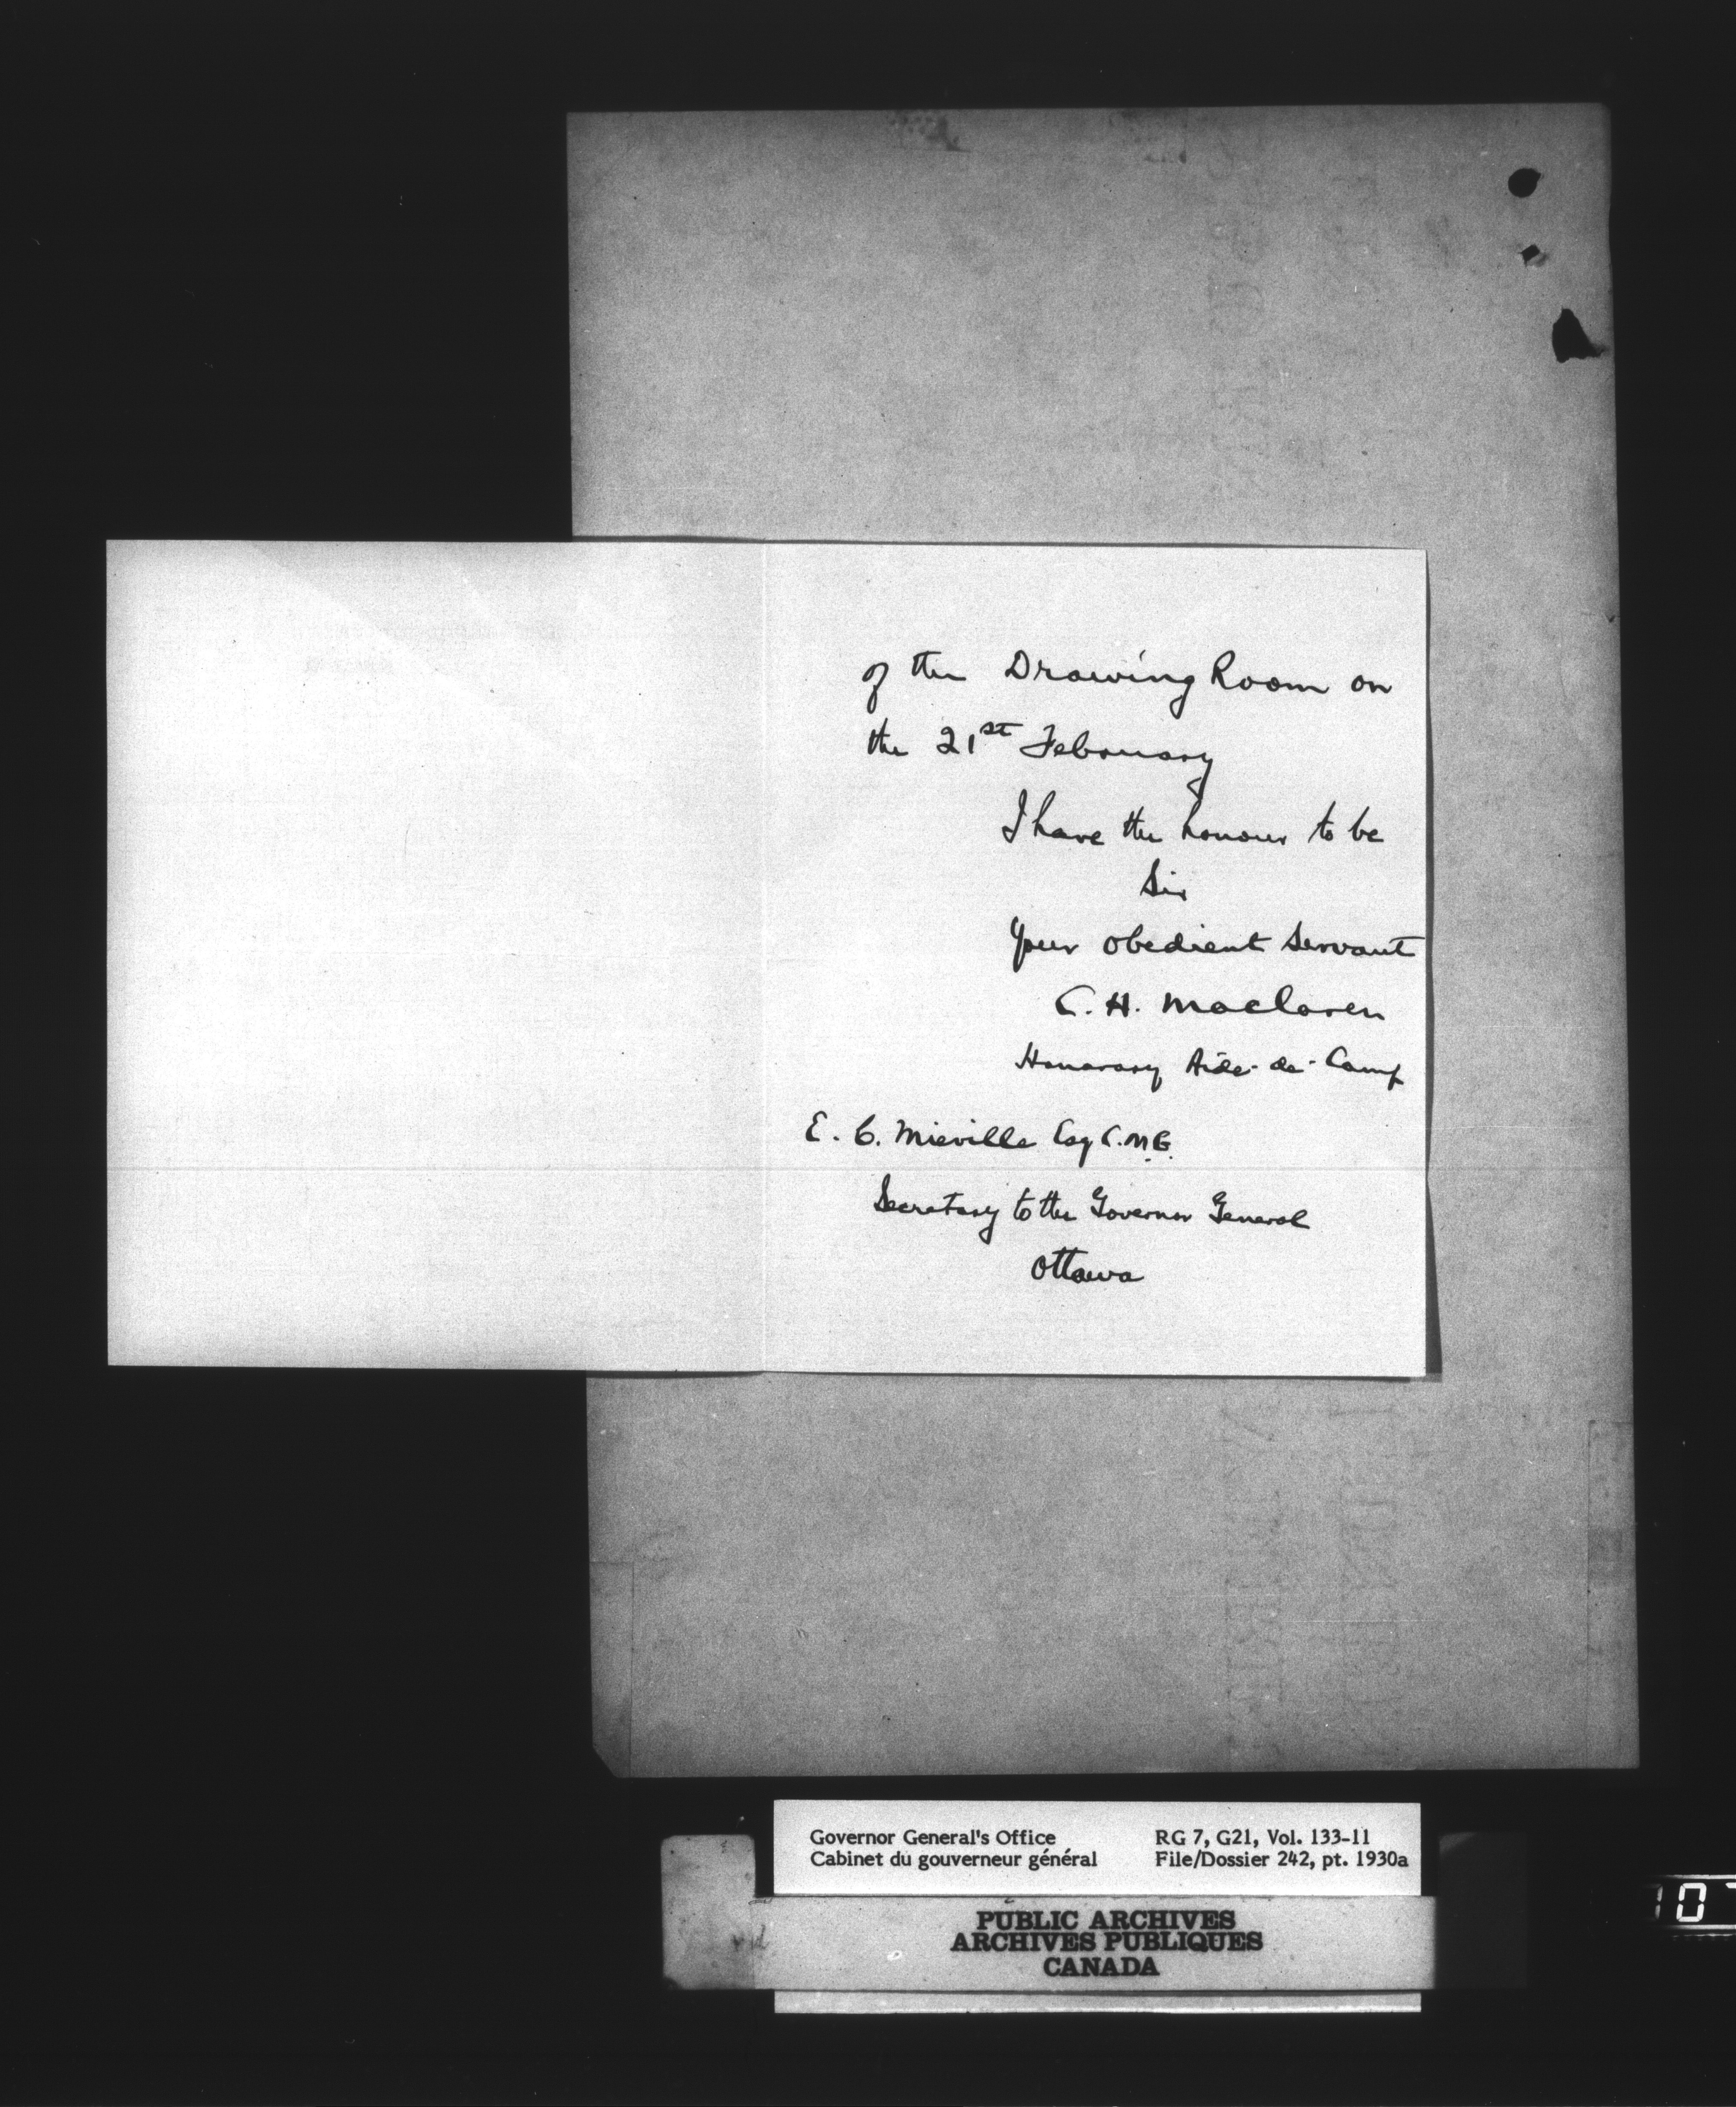 of the Drawing Room on
the 21st February
I have the honour to be
Sir
Your obedient Servant
C. H. Maclaren
Honorary Aide-de-Camp
E. C. Mieville Esq C.M.G.
Secretary to the Governor General
Ottawa
Governor General's Office
Cabinet du gouverneur général
RG 7, G21, Vol. 133-11
File/Dossier 242, pt. 1930a
PUBLIC ARCHIVES
ARCHIVES PUBLIQUES
CANADA